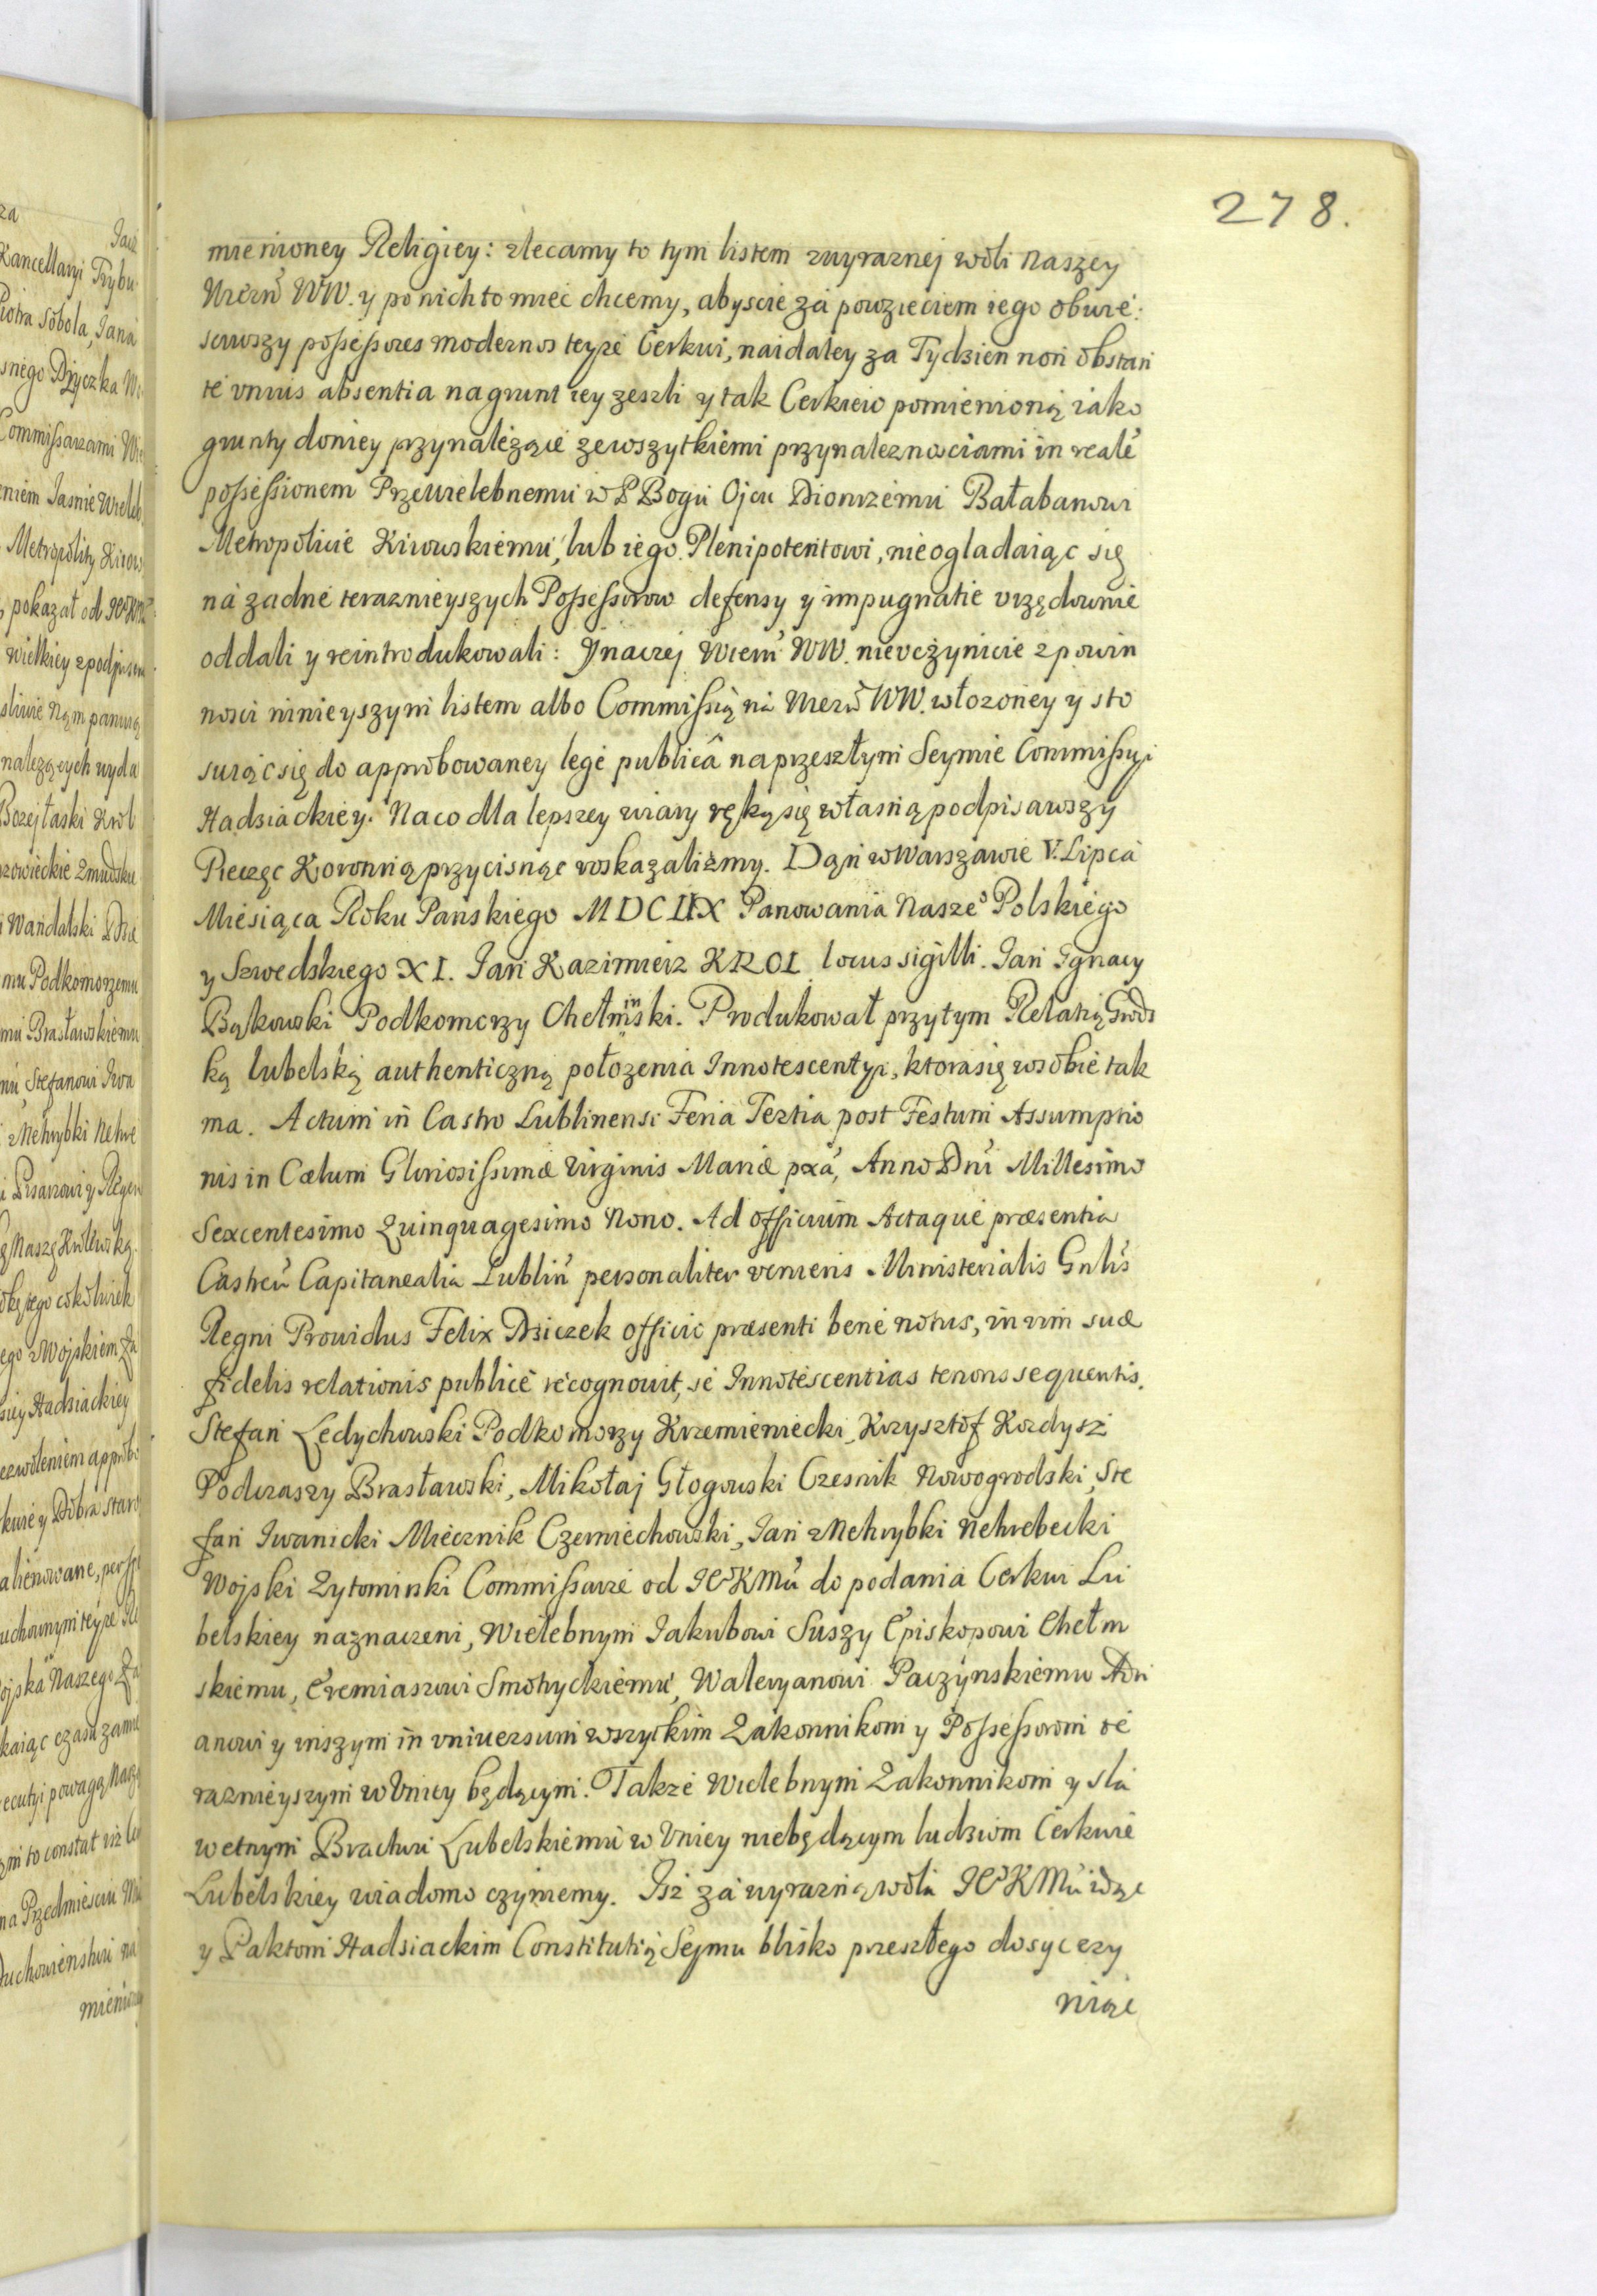 278.
mienioney Religiey: zlecamy to tym listem z wyraznej woli naszey
Wierñ WW. y po nich to miec chcemy, abyscie za powzieciem iego obwie:
sciwszy possessores modernos teyże Cerkwi, naidaley za Tydzien non obstan
te vnius absentia na grunt iey zeszli y tak Cerkiew pomienioną iako
grunty do niey przynalezące ze wszytkiemi przynaleznosciami in realē
possessionem Przewielebnemu w P Bogu Ojcu Dionizemu Bałabanowi
Metropolicie Kiiowskiemu, lub iego Plenipotentowi, nieogladaiąc się
na zadne terazniejszych Possessorow defensy y impugnatie vrzędownie
oddali y reintrodukowali: Ynaczej Wierñ WW. nievczynicie z powin
nosci ninieyszym listem albo Commissią na Wierñ WW. włozoney y sto
suiąc się do approbowaney lege publicâ na przeszłym Seymie Commissyi
Hadziackiey. Na co dla lepszey wiary ręką się własną podpisawszy
Pieczęc Koronną przycisnąc roskazalismy. Dąn w Warszawie V. Lipca
Miesiąca Roku Panskiego MDCLIX Panowania Nasze° Polskiego
y Szwedskiego XI. Jan Kazimierz KROL locus sigilli. Jan Ignacy
Bąkowski Podkomorzy Chełminski. Produkował przytym Relatią Grods
ką lubelską authenticzną połozenia Innotescentyi, ktora się w sobie tak
ma. Actum in Castro Lublinensi Feria Tertia post Festum Assumptio
nis in Cælum Gloriosissimæ Virginis Mariæ pxâ, Anno Dni Millesimo
Sexcentesimo Quinquagesimo Nono. Ad officium Actaque præsentia
Castreñ Capitanealia Lubliñ personaliter veniens Ministerialis Gnlis
Regni Prouidus Felix Dziczek officio præsenti bene notus, in vim suæ
fidelis relationis publicè recognouit, se Innotescentias tenoris sequentis.
Stefan Ledychowski Podkomorzy Krzemieniecki, Krzysztof Kordysz
Podczaszy Brasławski, Mikołaj Głogowski Czesnik Nowogrodski, Ste
fan Iwanicki Miecznik Czerniechowski, Jan z Nehrybki Nehrebecki
Wojski Zytominski Commissarze od IeoKMci do podania Cerkwi Lu
belskiey naznaczeni, Wielebnym Jakubowi Suszy Episkopowi Chełm
skiemu, Eremiaszowi Smotryckiemu, Waleryanowi Paczynskiemu Adri
anowi y inszym in vniuersum wszytkim Zakonnikom y Possessorom te
raznieyszym w Vniey będącym. Takze Wielebnym Zakonnikom y sla
wetnym Bractwu Lubelskiemu w Vniey niebędącym ludziom Cerkwie
Lubelskiey wiadomo czyniemy. Isz za wyrazną wola IeoKMci idąc
y Paktom Hadziackim Constitutią Sejmu blisko przeszłego dosyc czy
niąc